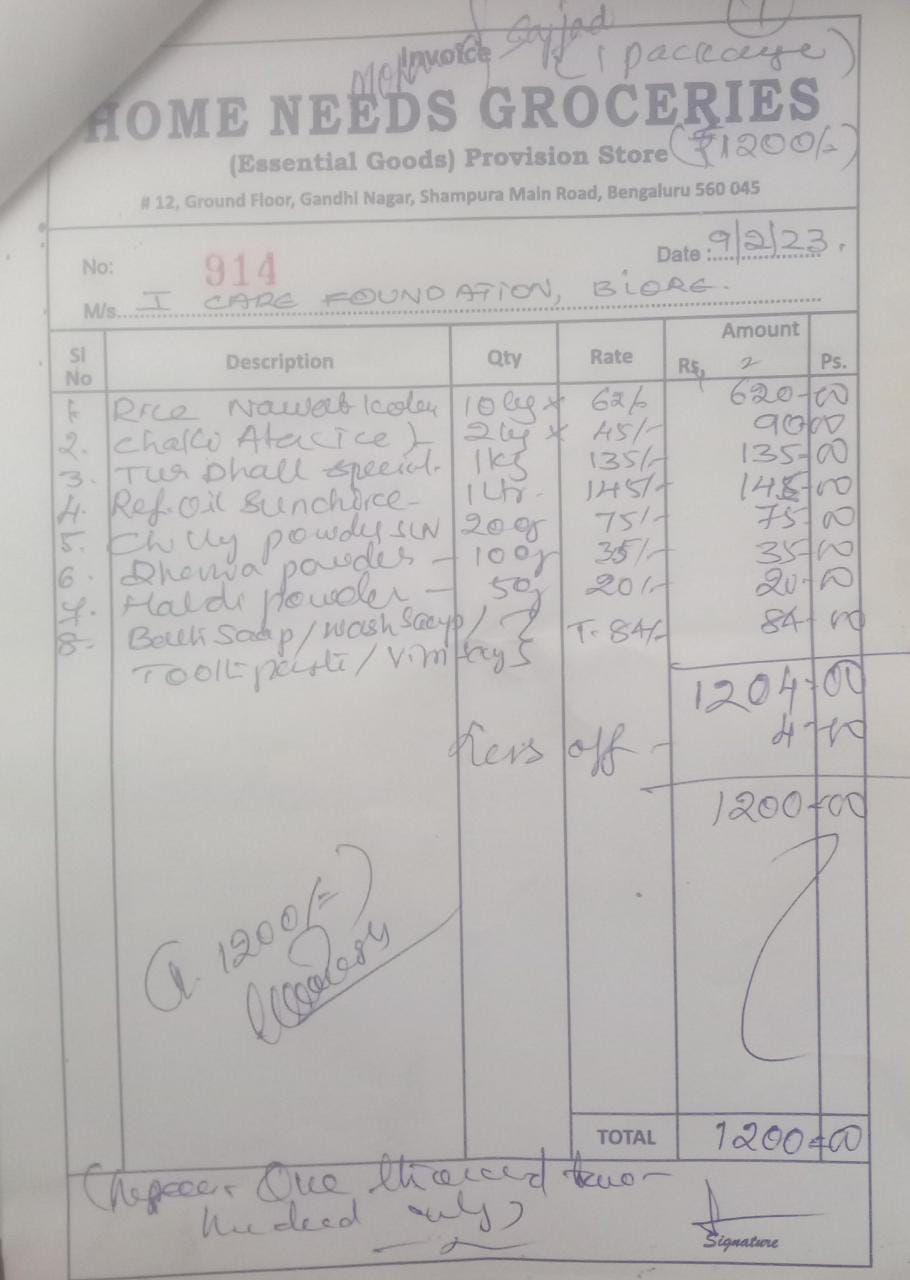 Sajjad
Invoice (1 package)
HOME NEEDS GROCERIES
(Essential Goods) Provision Store (₹1200/-)
# 12, Ground Floor, Gandhi Nagar, Shampura Main Road, Bengaluru 560 045
No: 914 Date : 9/2/23.
M/s. I CARE FOUNDATION, B'LORE.
Sl No Description Qty Rate Amount Rs, Ps.
1. Rice Nawab 10kg x 62/- 620-00
2. 2kg x 45/- 90 00
3. Tur Dhall special. 1kg 135/- 135-00
4. Ref. Oil Sunchoice - 1 Ltr. 145/- 145-00
5. Chilly powder SUN 200g 75/- 75 00
6. powder - 100g 35/- 35-00
7. Haldi powder - 50g 20/- 20-00
8. Bath Soap / Wash Soap / T. 84/- 84-00
Tooth paste / Vim
1204-00
off - 4-00
1200-00
1200/-)
TOTAL 1200-00
(Rupees One thousand two
hundred only)
Signature